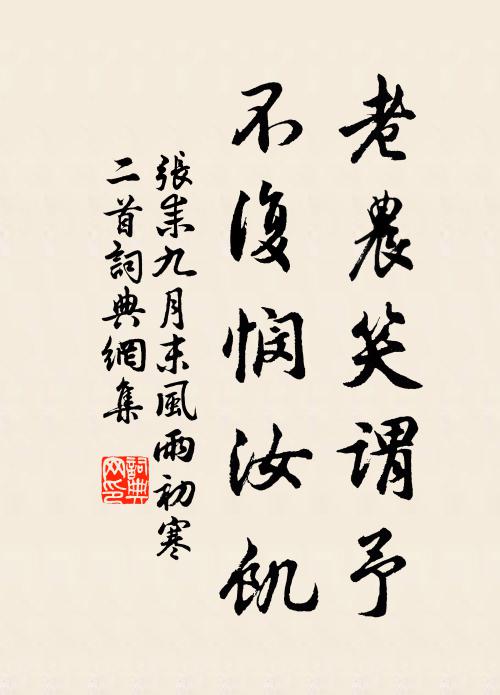 老農笑謂予
不復憫汝飢
張耒九月末風雨初寒
二首詞典網集
詞典
网印